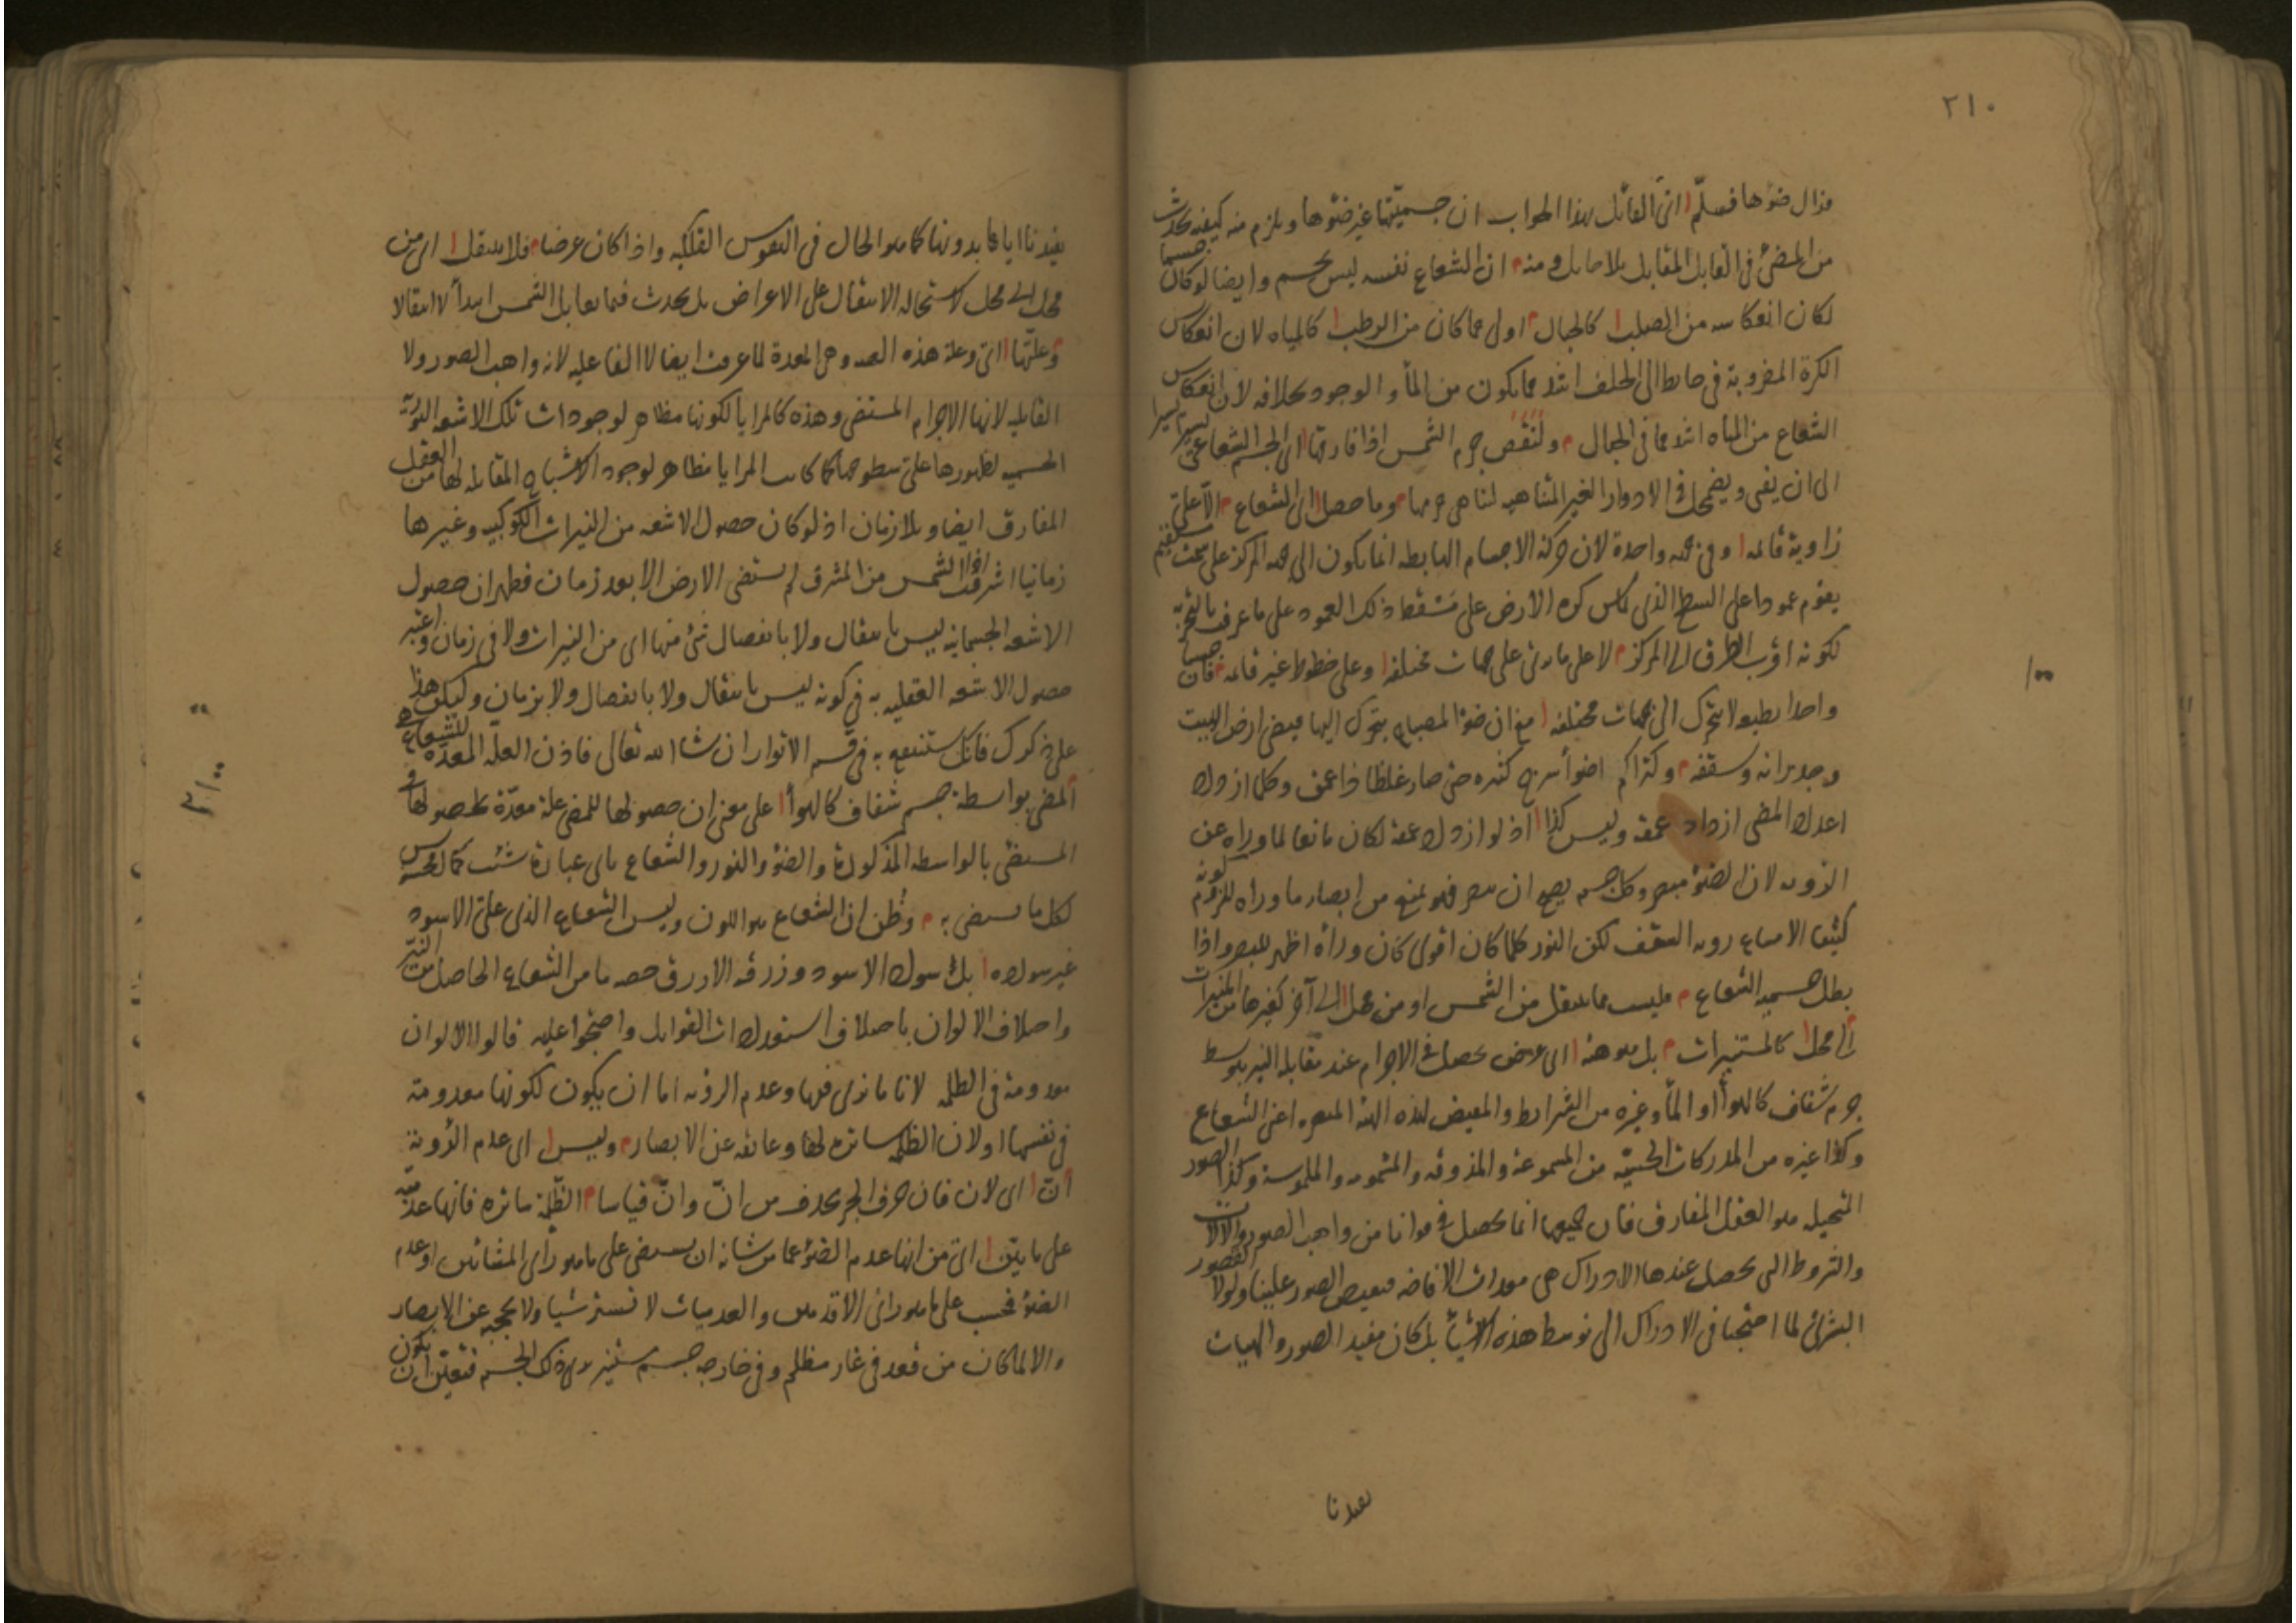 ٢١٠
فزال ضوٴها فسلّم ای القائل بهذا الجواب ان جسميتها غير ضوٴها ويلزم منه كيفيه تحدث
من المضئ فى القابل المقابل بلا حايل ومنه ان الشعاع نفسه ليس بجسم وايضا لو كان جسما
لكان انعكاسه من الصلب كالجبال اولى مما كان من الرطب كالمياه لان انعكاس
الكرة المضروبة فى حايط الى الخلف اشد مما يكون من الماٴ والوجود بخلافه لان انعكاس
الشعاع من المياه اشد مما فى الجبال ولنقص جرم الشمس اذا فارقها اى الجسم الشعاعى يسيرا يسيرا
الى ان يفنى ويضمحل فى الادوار الغير المتناهيه لتناهى جرمها وما حصل اى الشعاع الا على
زاوية قائمه وفى جهه واحدة لان حركة الاجسام الهابطه انما يكون الى جهه المركز على سمت مستقيم
يقوم عمودا على السطح الذى يماس كره الارض على مسقط ذلك العمود على ما عرف بالتجربه
لكونه اقرب الطرق الى المركز لا على ما يرى على جهات مختلفه وعلى خطوط غير قائمه فان جسما
واحدا بطبعه لا يتحرك الى جهات مختلفه مع ان ضوٴ المصباح يتحرك اليها فيضئ ارض البيت
وجدرانه وسقفه ولتراكم اضواٴ سرج كثيره حتى صار غلظا ذا عمق وكلما ازداد
اعداد المضئ ازداد عمقه وليس كذا اذ لو ازداد عمقه لكان مانعا لما وراه عن
الرويه لان الضوٴ مبصر وكل جسم يصح ان يبصر فهو يمنع من ابصار ما وراه للزوم كونه
كثيفا لامتناع رويه الشفف لكن النور كلما كان اقوى كان وراٴه اظهر للبصر واذا
بطل جسميه الشعاع فليست مما ينتقل من الشمس او من محل الى آخر كغيرها من النيرات
الى محل كالمستنيرات بل هو هيئه اى عرض يحصل فى الاجرام عند مقابله النير بتوسط
جرم شفاف كالهواٴ او الماٴ وغيره من الشرايط والمفيض لهذه الهيئه المبصره اعنى الشعاع
وكذا غيره من المدركات الحسيّه من المسموعة والمذوقه والمشمومه والملموسة وكذا الصور
المتخيله هو العقل المفارق فان جميعها انما يحصل فى قوانا من واهب الصور والآلات
والشروط التى يحصل عندها الادراك هى معدات لافاضه مفيض الصور علينا ولولا القصور
البشرى لما احتجنا فى الادراك الى توسط هذه الاشياٴ بل كان مفيد الصور والهيات
يفيدنا
١٠٠
يفيدنا اياها بدونها كما هو الحال فى النفوس الفلكيه واذا كان عرضا فلا ينتقل اى من
محل الى محل لاستحاله الانتقال على الاعراض بل يحدث فيما يقابل الشمس ابدأ لا انتقالا
وعلّتها اى وعلة هذه الهيئه وهى المعدة لما عرفت ايضا لا الفاعليه لانه واهب الصور ولا
القابليه لانها الاجرام المستضئ وهذه كالمرايا لكونها مظاهر لوجودات تلك الاشعه النوريّه
الحسيه لظهورها على سطوحها كما كانت المرايا مظاهر لوجود الاشباح المقابله لها من العقل
المفارق ايضا وبلا زمان اذ لو كان حصول الاشعه من النيرات الكوكبيه وغيرها
زمانيا اذا اشرقت الشمس من المشرق لم يستضئ الارض الا بعد زمان فظهر ان حصول
الاشعه الجسمانيه ليس بانتقال ولا بانفصال شئ منها اى من النيرات ولا فى زمان واعتبر
حصول الاشعه العقليه به فى كونه ليس بانتقال ولا بانفصال ولا بزمان وليكن هذا
على ذكرك فانك ستنتفع به فى قسم الانوار ان شا الله تعالى فاذن العلّه المعدّه للشعاع هو
المضئ بواسطة جسم شفاف كالهواٴ على معنى ان حصولها للمضئ علة معدّة لحصولها فى
المستضئ بالواسطه المذكورة والضوٴ والنور والشعاع باى عبارة شئت كمال محسوس
لكل ما يستضئ به وظُن ان الشعاع هو اللون وليس الشعاع الذى على الاسود
غير سواده بل سواد الاسود وزرقه الازرق حصه ما من الشعاع الحاصل من النيّر
واختلاف الالوان باختلاف استعدادات القوابل واحتجّوا عليه قالوا الالوان
معدومة فى الظلمه لانا ما نرى فيها وعدم الرؤيه اما ان يكون لكونها معدومة
فى نفسها او لان الظلمه ساتره لها وعائقه عن الابصار وليس اى عدم الرؤية
انّ اى لان فان حرف الجر يحذف من انّ وانّ قياسا الظّلمة ساتره فانها عدميّه
على ما بيّن اى من انها عدم الضوٴ عما من شانه ان يستضئ على ما هو رأى المشائين او عدم
الضوٴ فحسب على ما هو راى الاقدمين والعدميات لا تستر شيا ولا تحجبه عن الابصار
والا لما كان من قعد فى غار مظلم وفى خارجه جسم مستنير يرى ذلك الجسم فتعيّن ان يكون